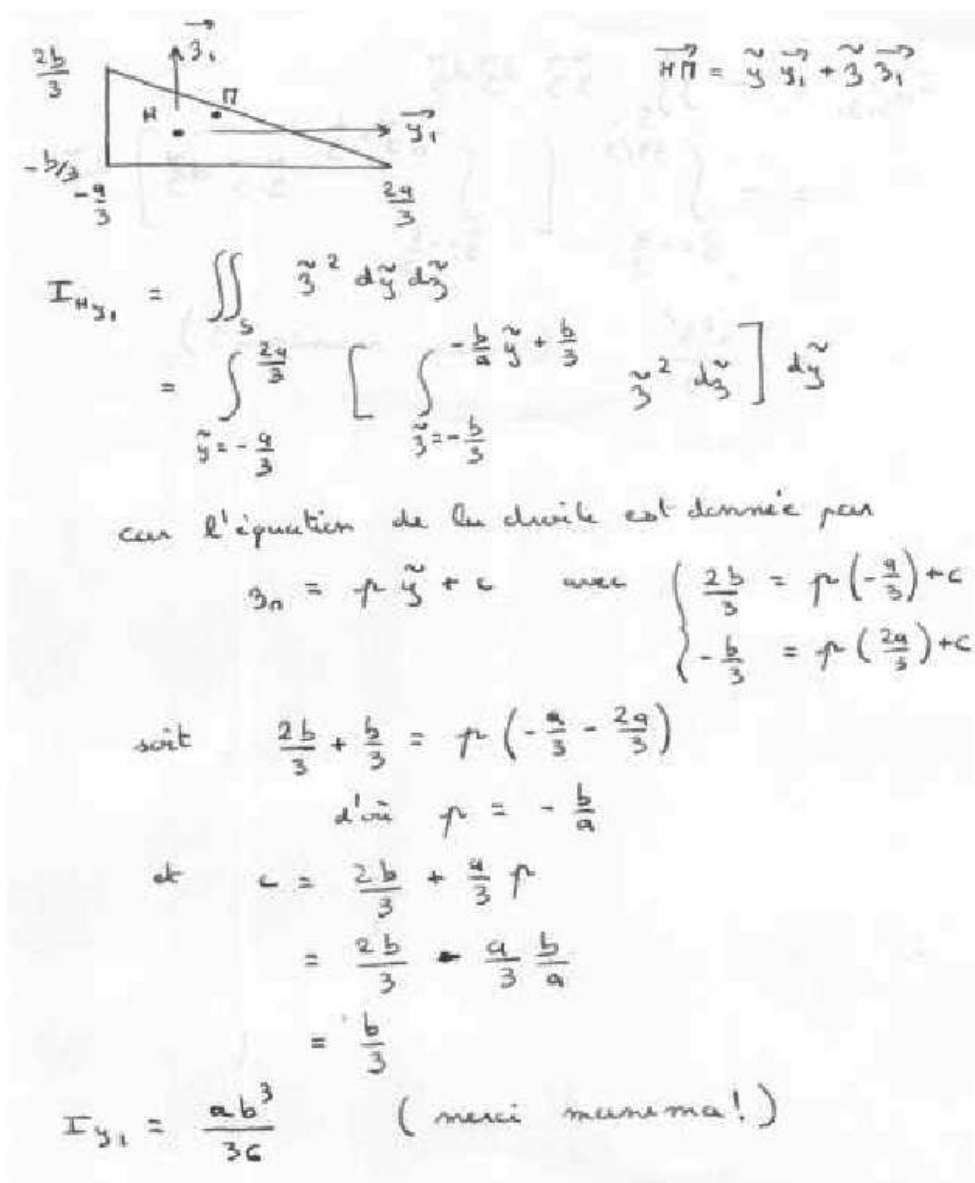 2b/3
z₁
HM = ỹ y₁ + z̃ z₁
H
M
y₁
-b/3
-a/3
2a/3
I_{Hy₁} = ∬_S z̃² dỹ dz̃
= ∫_{ỹ=-a/3}^{2a/3} [ ∫_{z̃=-b/3}^{-b/a ỹ + b/3} z̃² dz̃ ] dỹ
car l'équation de la droite est donnée par
z_n = p ỹ + c avec { 2b/3 = p (-a/3) + c
-b/3 = p (2a/3) + c
soit 2b/3 + b/3 = p (-a/3 - 2a/3)
d'où p = - b/a
et c = 2b/3 + a/3 p
= 2b/3 - a/3 b/a
= b/3
I_{y₁} = ab³/36 (merci !)